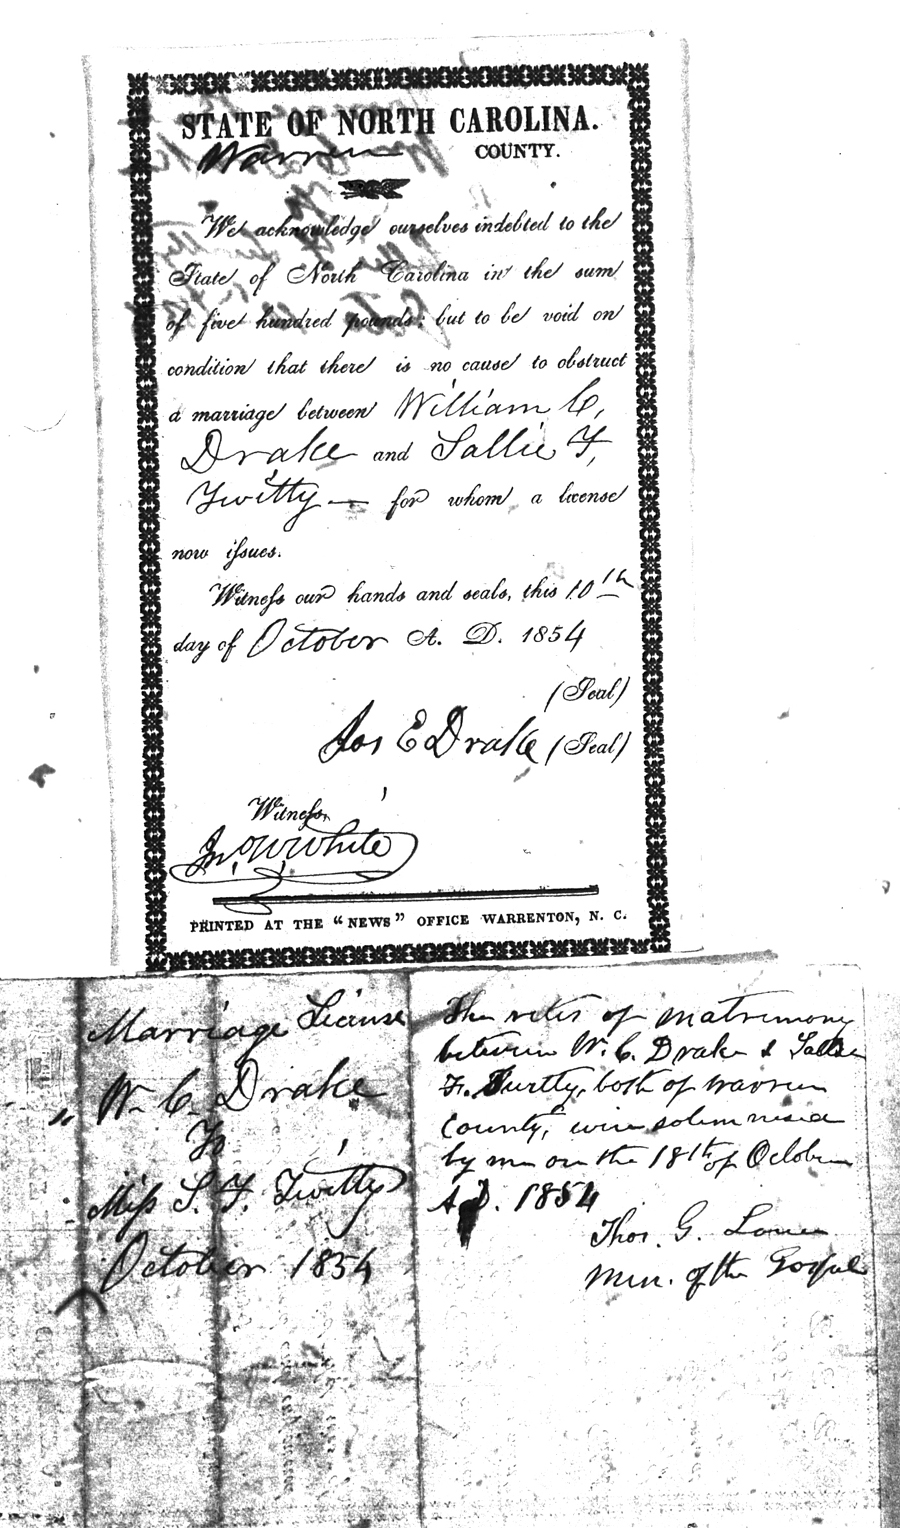 STATE OF NORTH CAROLINA.
Warren COUNTY.
We acknowledge ourselves indebted to the
State of North Carolina in the sum
of five hundred pounds; but to be void on
condition that there is no cause to obstruct
a marriage between William C.
Drake and Sallie F.
Twitty — for whom a license
now issues.
Witness our hands and seals, this 10th
day of October A. D. 1854
(Seal)
Jas E Drake (Seal)
Witness,
Jno. W. White
PRINTED AT THE "NEWS" OFFICE WARRENTON, N. C.
Marriage License
W. C. Drake
To
Miss S. F. Twitty
October 1854
The rites of matrimony
between W. C. Drake & Sallie
F. Twitty, both of Warren
County, were solemnised
by me on the 18th of October
A.D. 1854
Thos. G. Lowe
Min. of the Gospel